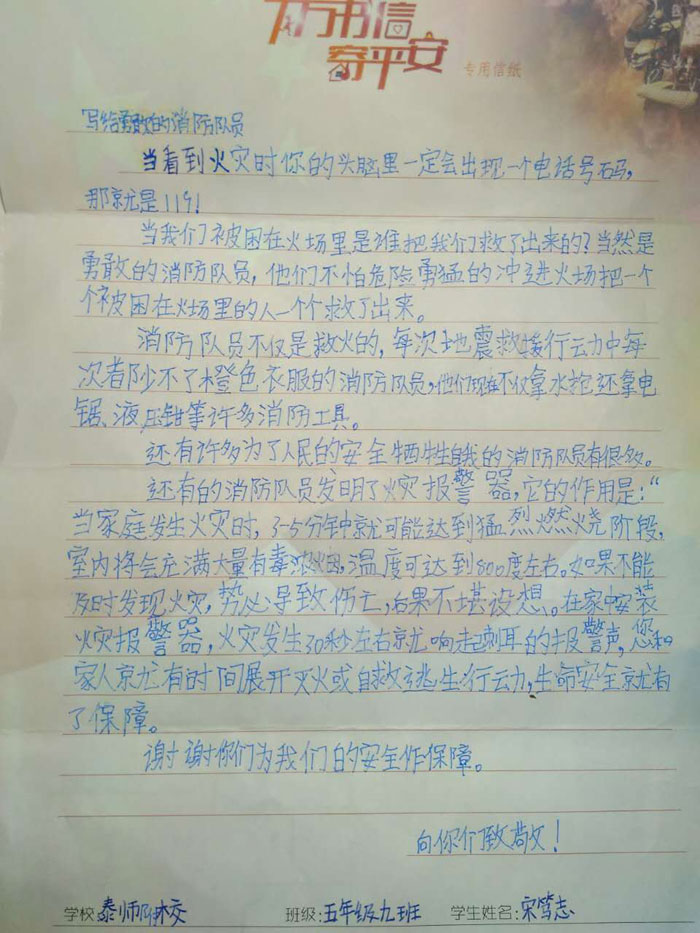 万书信
寄平安
专用信纸
写给勇敢的消防队员
当看到火灾时你的头脑里一定会出现一个电话号码,
那就是119!
当我们被困在火场里是谁把我们救了出来的?当然是
勇敢的消防队员,他们不怕危险勇猛的冲进火场把一个
个被困在火场里的人一个个救了出来。
消防队员不仅是救火的,每次地震救援行动中每
次者缺不了橙色衣服的消防队员,他们现在不仅拿水枪还拿电
锯、液压钳等许多消防工具。
还有许多为了人民的安全牺牲自我的消防队员有很多。
还有的消防队员发明了火灾报警器,它的作用是:“
当家庭发生火灾时,3-5分钟就可能达到猛烈燃烧阶段,
室内将会充满大量有毒浓烟,温度可达到800度左右。如果不能
及时发现火灾,势必导致伤亡,后果不堪设想。在家中安装
火灾报警器,火灾发生30秒左右就响起刺耳的报警声,您和
家人就有时间展开灭火或自救逃生行动,生命安全就有
了保障。
谢谢你们为我们的安全作保障。
向你们致敬!
学校:泰师附校 班级:五年级九班 学生姓名:宋笃志